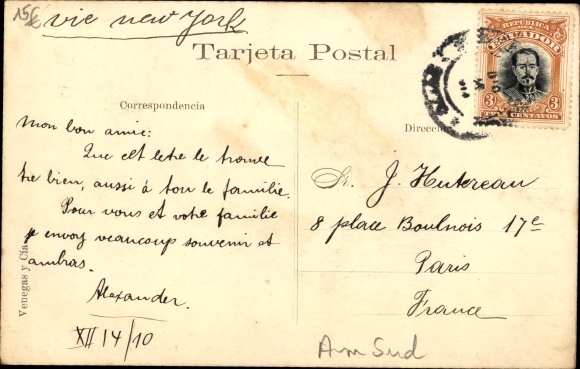 15€
vie new York
Tarjeta Postal
REPÚBLICA
DEL
ECUADOR
3
3
CENTAVOS
Correspondencia
Dirección
mon bon amie:
Que cet letre le trouve
tre bien, aussi á tou le familie.
Pour vous et votre familie
je envoy veaucoup souvenir et
ambras.
Alexander.
XII 14/10
Sr. J. Hutereau
8 place Boulnois 17e
Paris
France
Am Sud
Venegas y Cia